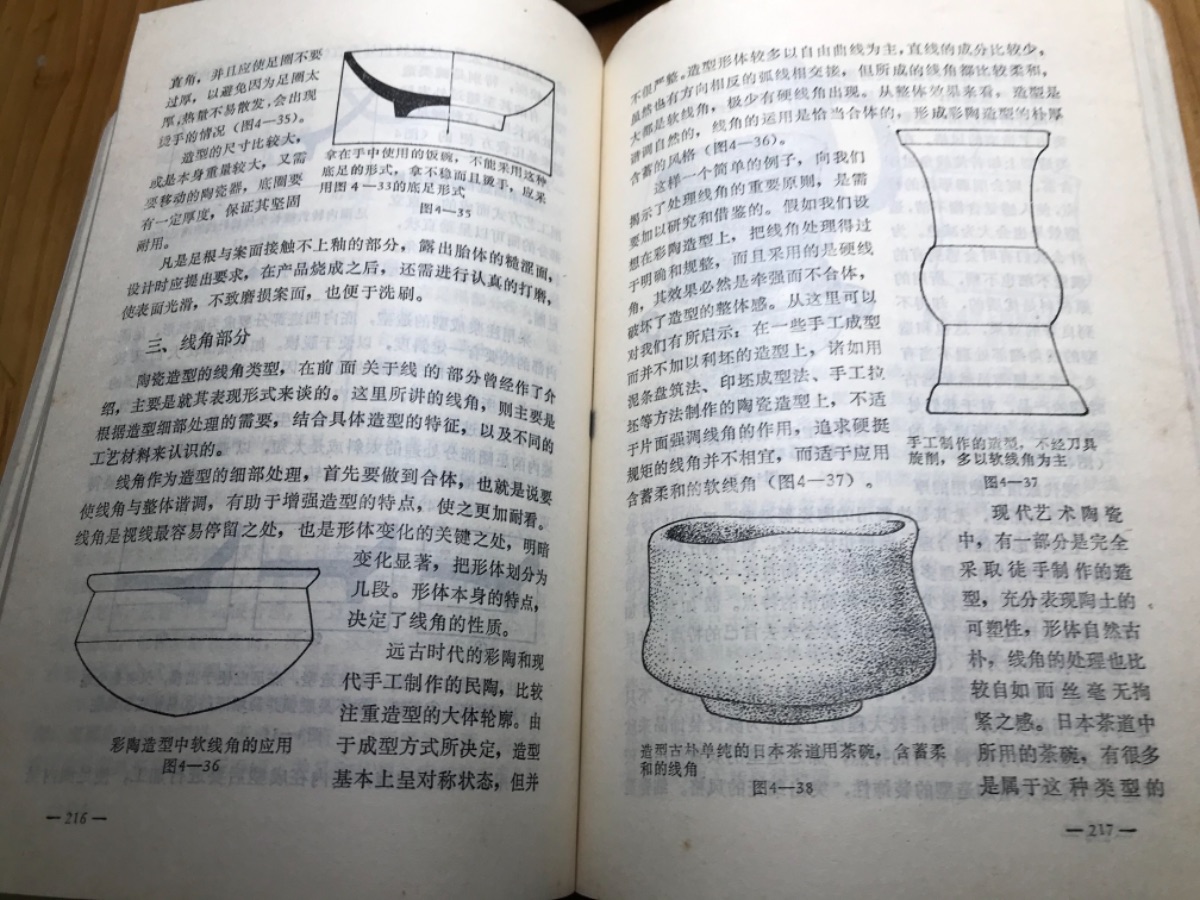 直角，并且应使足圈不要
过厚，以避免因为足圈太
厚，热量不易散发，会出现
烫手的情况（图4—35）。
造型的尺寸比较大，
或是本身重量较大，又需
要移动的陶瓷器，底圈要
有一定厚度，保证其坚固
耐用。
拿在手中使用的饭碗，不能采用这种
底足的形式，拿不稳而且烫手，应采
用图4—33的底足形式
图4—35
凡是足根与案面接触不上釉的部分，露出胎体的糙涩面，
设计时应提出要求，在产品烧成之后，还需进行认真的打磨，
使表面光滑，不致磨损案面，也便于洗刷。
三、线角部分
陶瓷造型的线角类型，在前面关于线的部分曾经作了介
绍，主要是就其表现形式来谈的。这里所讲的线角，则主要是
根据造型细部处理的需要，结合具体造型的特征，以及不同的
工艺材料来认识的。
线角作为造型的细部处理，首先要做到合体，也就是说要
使线角与整体谐调，有助于增强造型的特点，使之更加耐看。
线角是视线最容易停留之处，也是形体变化的关键之处，明暗
变化显著，把形体划分为
几段。形体本身的特点，
决定了线角的性质。
远古时代的彩陶和现
代手工制作的民陶，比较
注重造型的大体轮廓。由
于成型方式所决定，造型
基本上呈对称状态，但并
彩陶造型中软线角的应用
图4—36
—216—
不很严整。造型形体较多以自由曲线为主，直线的成分比较少，
虽然也有方向相反的弧线相交接，但所成的线角都比较柔和，
大都是软线角，极少有硬线角出现。从整体效果来看，造型是
谐调自然的，线角的运用是恰当合体的，形成彩陶造型的朴厚
含蓄的风格（图4—36）。
这样一个简单的例子，向我们
揭示了处理线角的重要原则，是需
要加以研究和借鉴的。假如我们设
想在彩陶造型上，把线角处理得过
于明确和规整，而且采用的是硬线
角，其效果必然是牵强而不合体，
破坏了造型的整体感。从这里可以
对我们有所启示：在一些手工成型
而并不加以利坯的造型上，诸如用
泥条盘筑法、印坯成型法、手工拉
坯等方法制作的陶瓷造型上，不适
于片面强调线角的作用，追求硬挺
规矩的线角并不相宜，而适于应用
含蓄柔和的软线角（图4—37）。
手工制作的造型，不经刀具
旋削，多以软线角为主
图4—37
现代艺术陶瓷
中，有一部分是完全
采取徒手制作的造
型，充分表现陶土的
可塑性，形体自然古
朴，线角的处理也比
较自如而丝毫无拘
紧之感。日本茶道中
所用的茶碗，有很多
是属于这种类型的
造型古朴单纯的日本茶道用茶碗，含蓄柔
和的线角
图4—38
—217—